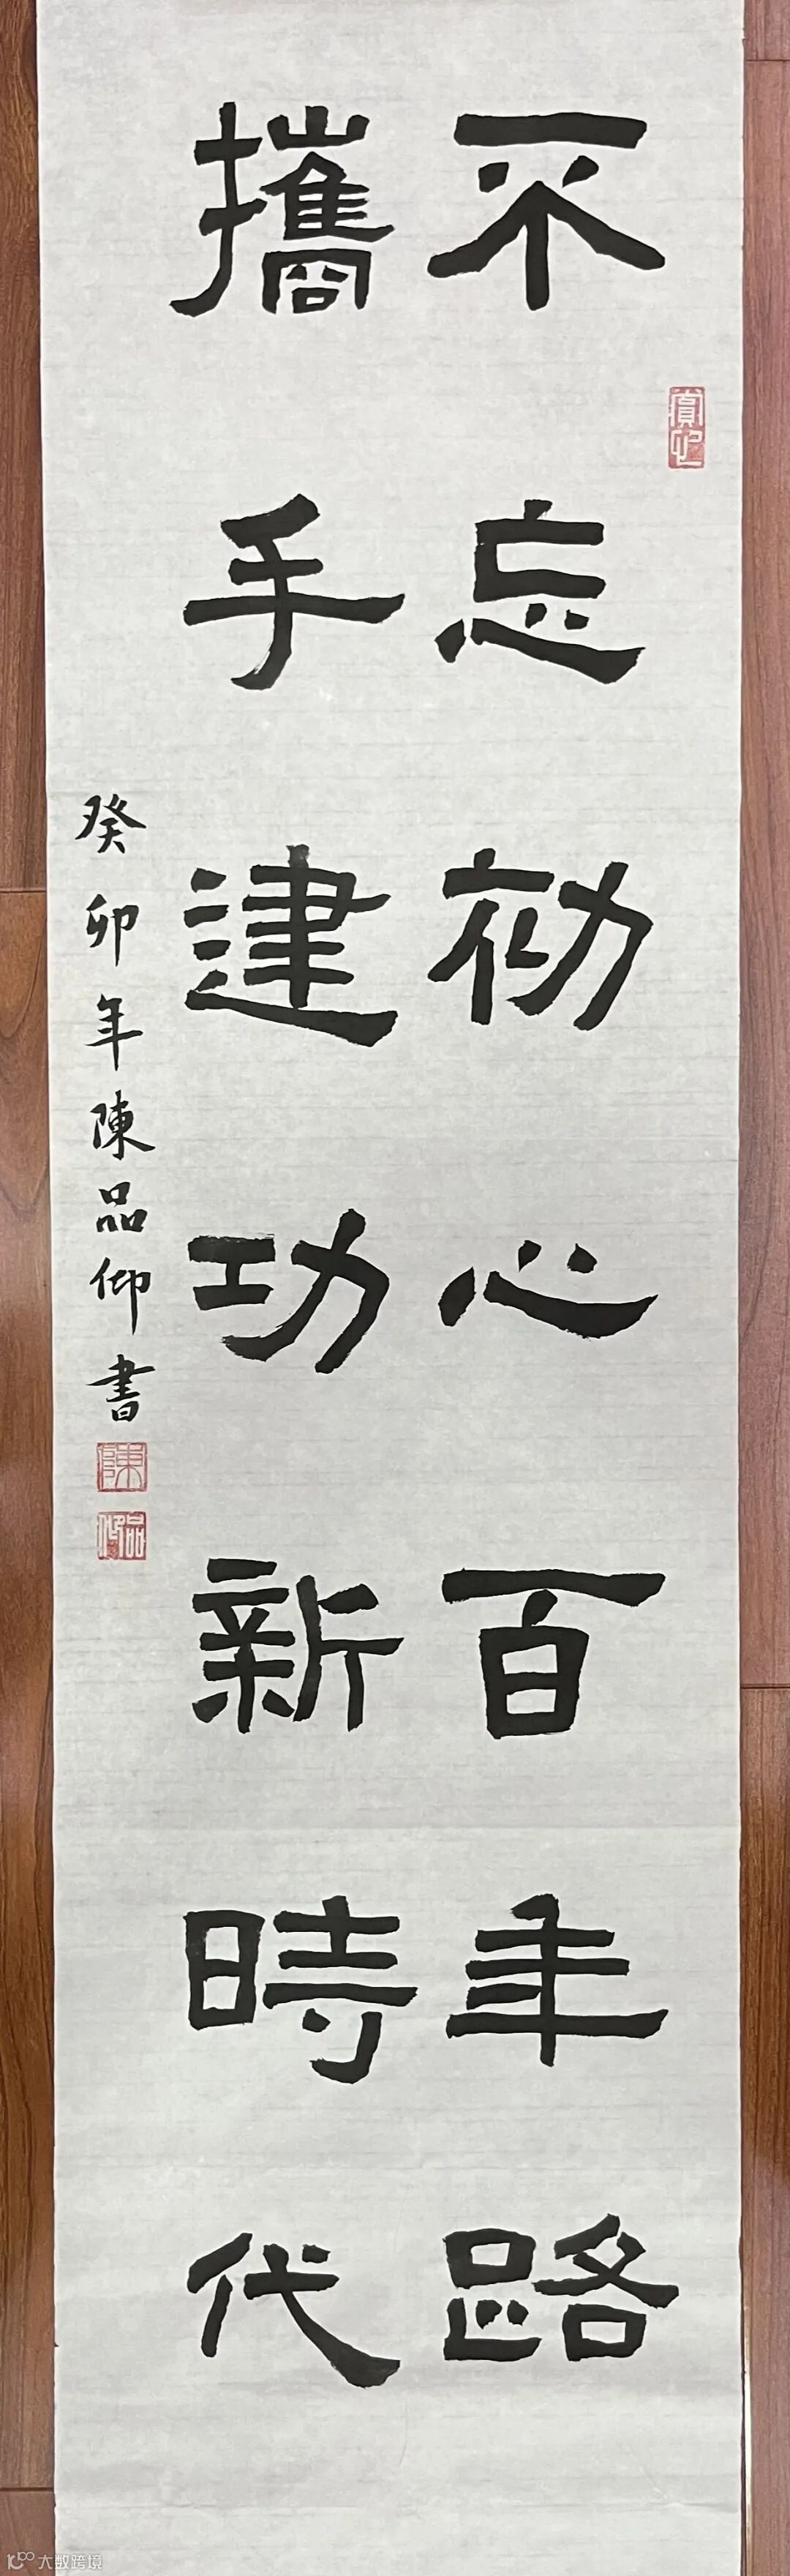 不忘初心百年路
攜手建功新時代
癸卯年陳品仰書
陳
品仰
大数跨境